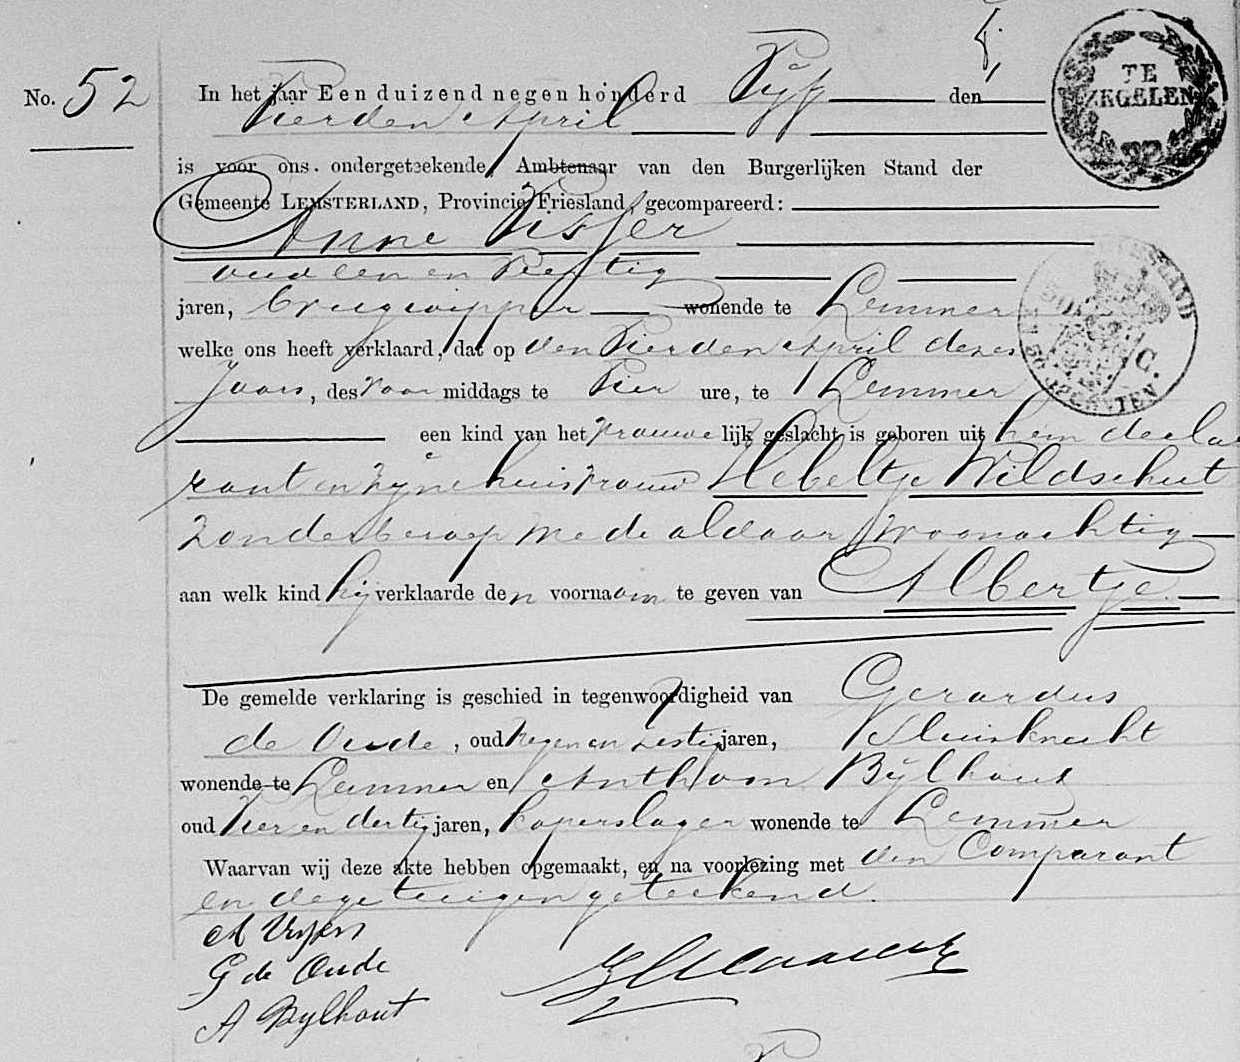 No. 52
In het jaar Een duizend negen honderd Vijf den
Vierden April
is voor ons ondergeteekende Ambtenaar van den Burgerlijken Stand der
Gemeente LEMSTERLAND, Provincie Friesland, gecompareerd:
Anne Visser
oud een en Veertig
jaren, brugwipper wonende te Lemmer
welke ons heeft verklaard, dat op den Vierden April dezes
Jaars, des Voor middags te Vier ure, te Lemmer
een kind van het vrouwelijk geslacht is geboren uit hem decla
rant en zijne huisvrouw Hebeltje Wildschut
zonder beroep mede aldaar woonachtig
aan welk kind hij verklaarde den voornaam te geven van Albertje
De gemelde verklaring is geschied in tegenwoordigheid van Gerardus
de Oude, oud negen en zestig jaren, Sluisknecht
wonende te Lemmer en Anthoon Bijlhout
oud Vier en dertig jaren, koperslager wonende te Lemmer
Waarvan wij deze akte hebben opgemaakt, en na voorlezing met den Comparant
en de getuigen geteekend.
A Visser
G de Oude
A Bijlhout
TE
ZEGELEN